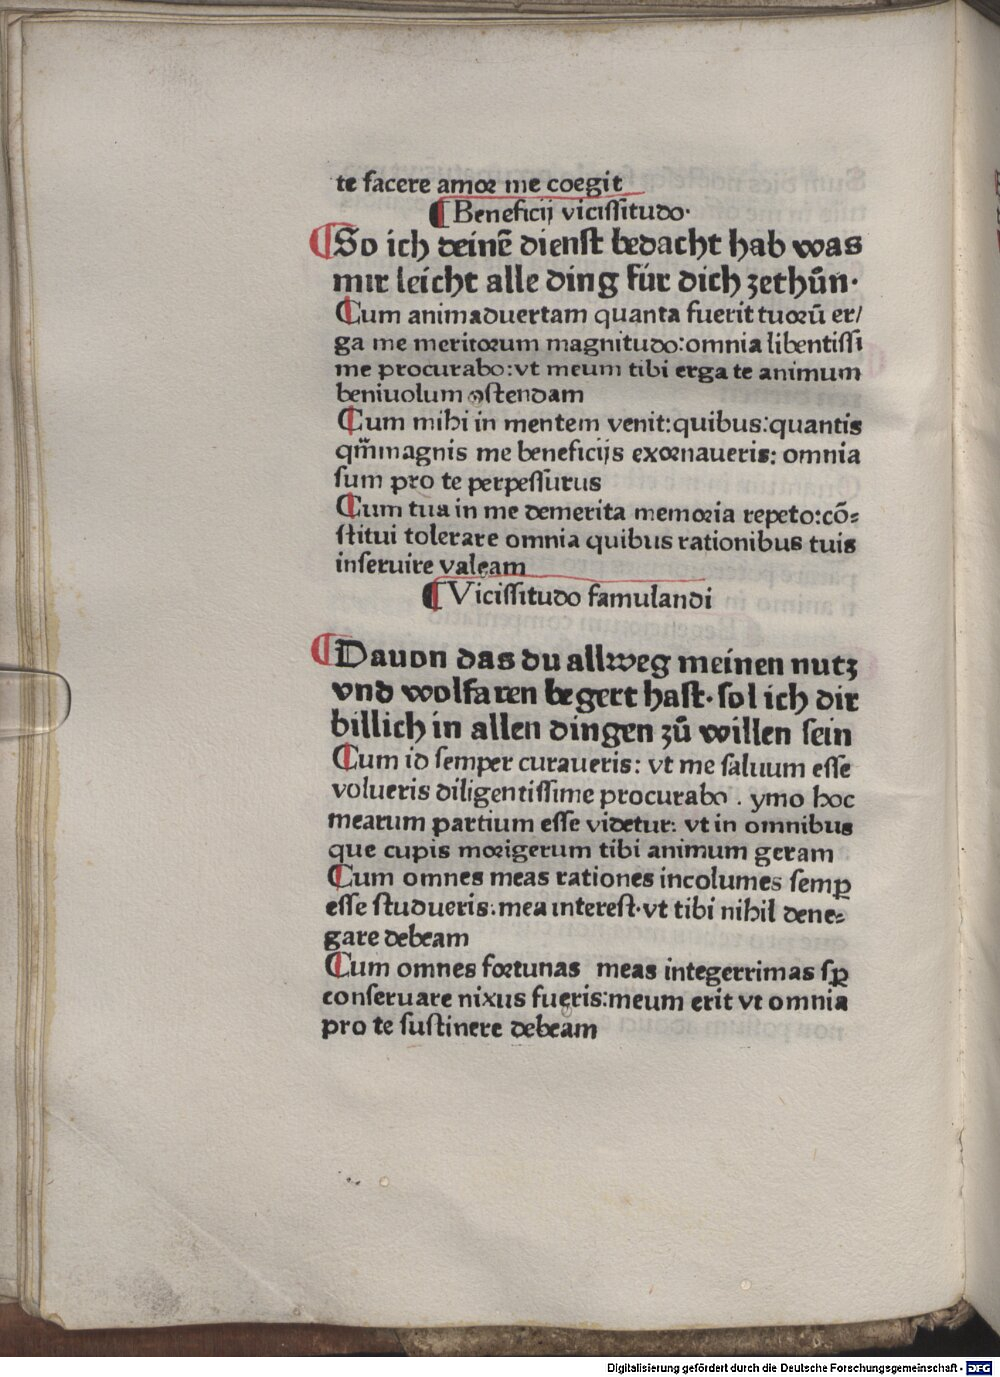 te facere amor me coegit
¶ Beneficij vicissitudo·
¶ So ich deinē dienst bedacht hab was
mir leicht alle ding für dich zethūn·
Cum animaduertam quanta fuerit tuorū er/
ga me meritorum magnitudo:omnia libentissi
me procurabo:vt meum tibi erga te animum
beniuolum ostendam
Cum mihi in mentem venit:quibus:quantis
qm̄magnis me beneficijs exornaueris: omnia
sum pro te perpessurus
Cum tua in me demerita memoria repeto:cō⸗
stitui tolerare omnia quibus rationibus tuis
inseruire valeam
¶ Vicissitudo famulandi
¶ Dauon das du allweg meinen nutz
vnd wolfaren begert hast· sol ich dir
billich in allen dingen zū willen sein
Cum id semper curaueris: vt me saluum esse
volueris diligentissime procurabo . ymo hoc
mearum partium esse videtur: vt in omnibus
que cupis morigerum tibi animum geram
Cum omnes meas rationes incolumes semꝑ
esse studueris:mea interest·vt tibi nihil dene⸗
gare debeam
Cum omnes fortunas meas integerrimas sꝑ
conseruare nixus fueris:meum erit vt omnia
pro te sustinere debeam
Digitalisierung gefördert durch die Deutsche Forschungsgemeinschaft - DFG